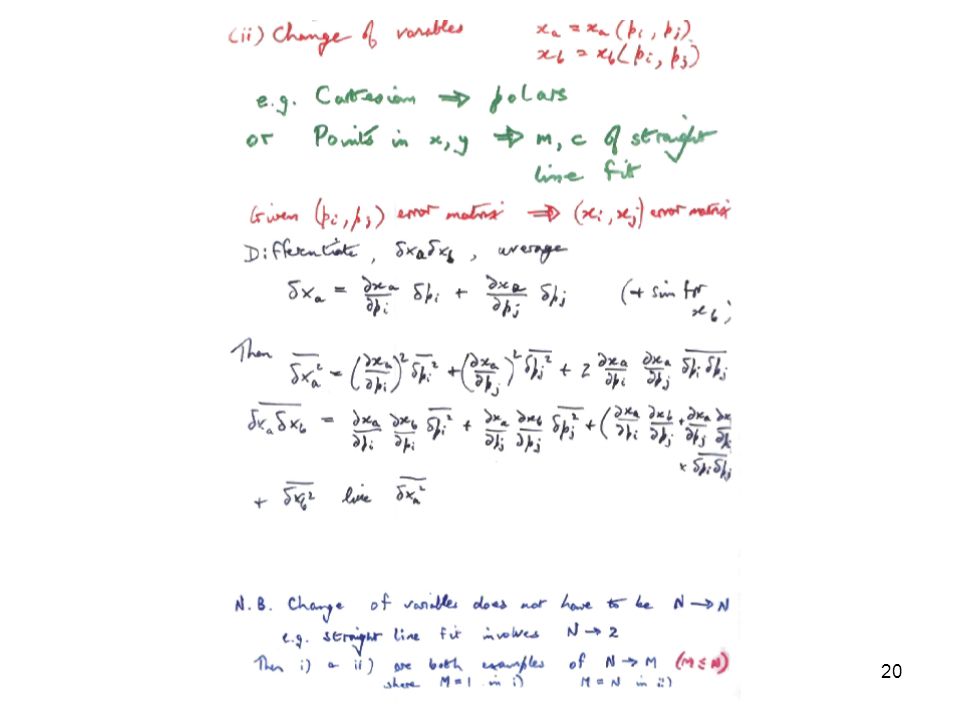 (ii) Change of variables xₐ = xₐ (pᵢ, pⱼ)
x_b = x_b (pᵢ, pⱼ)
e.g. Cartesian ⇒ polars
or Points in x, y ⇒ m, c of straight
line fit
Given (pᵢ, pⱼ) error matrix ⇒ (xᵢ, xⱼ) error matrix
Differentiate, δxₐδx_b, average
δxₐ = ∂xₐ/∂pᵢ δpᵢ + ∂xₐ/∂pⱼ δpⱼ (+ sim for
x_b)
Then \overline{δxₐ²} = (∂xₐ/∂pᵢ)² \overline{δpᵢ²} + (∂xₐ/∂pⱼ)² \overline{δpⱼ²} + 2 ∂xₐ/∂pᵢ ∂xₐ/∂pⱼ \overline{δpᵢ δpⱼ}
\overline{δxₐδx_b} = ∂xₐ/∂pᵢ ∂x_b/∂pᵢ \overline{δpᵢ²} + ∂xₐ/∂pⱼ ∂x_b/∂pⱼ \overline{δpⱼ²} + (∂xₐ/∂pᵢ ∂x_b/∂pⱼ + ∂xₐ/∂pⱼ ∂x/∂p
× \overline{δpᵢ δpⱼ}
+ \overline{δx_b²} like \overline{δxₐ²}
N.B. Change of variables does not have to be N → N
e.g. straight line fit involves N → 2
Then i) & ii) are both examples of N → M (M ≤ N)
where M = 1 in i) M = N in ii)
20